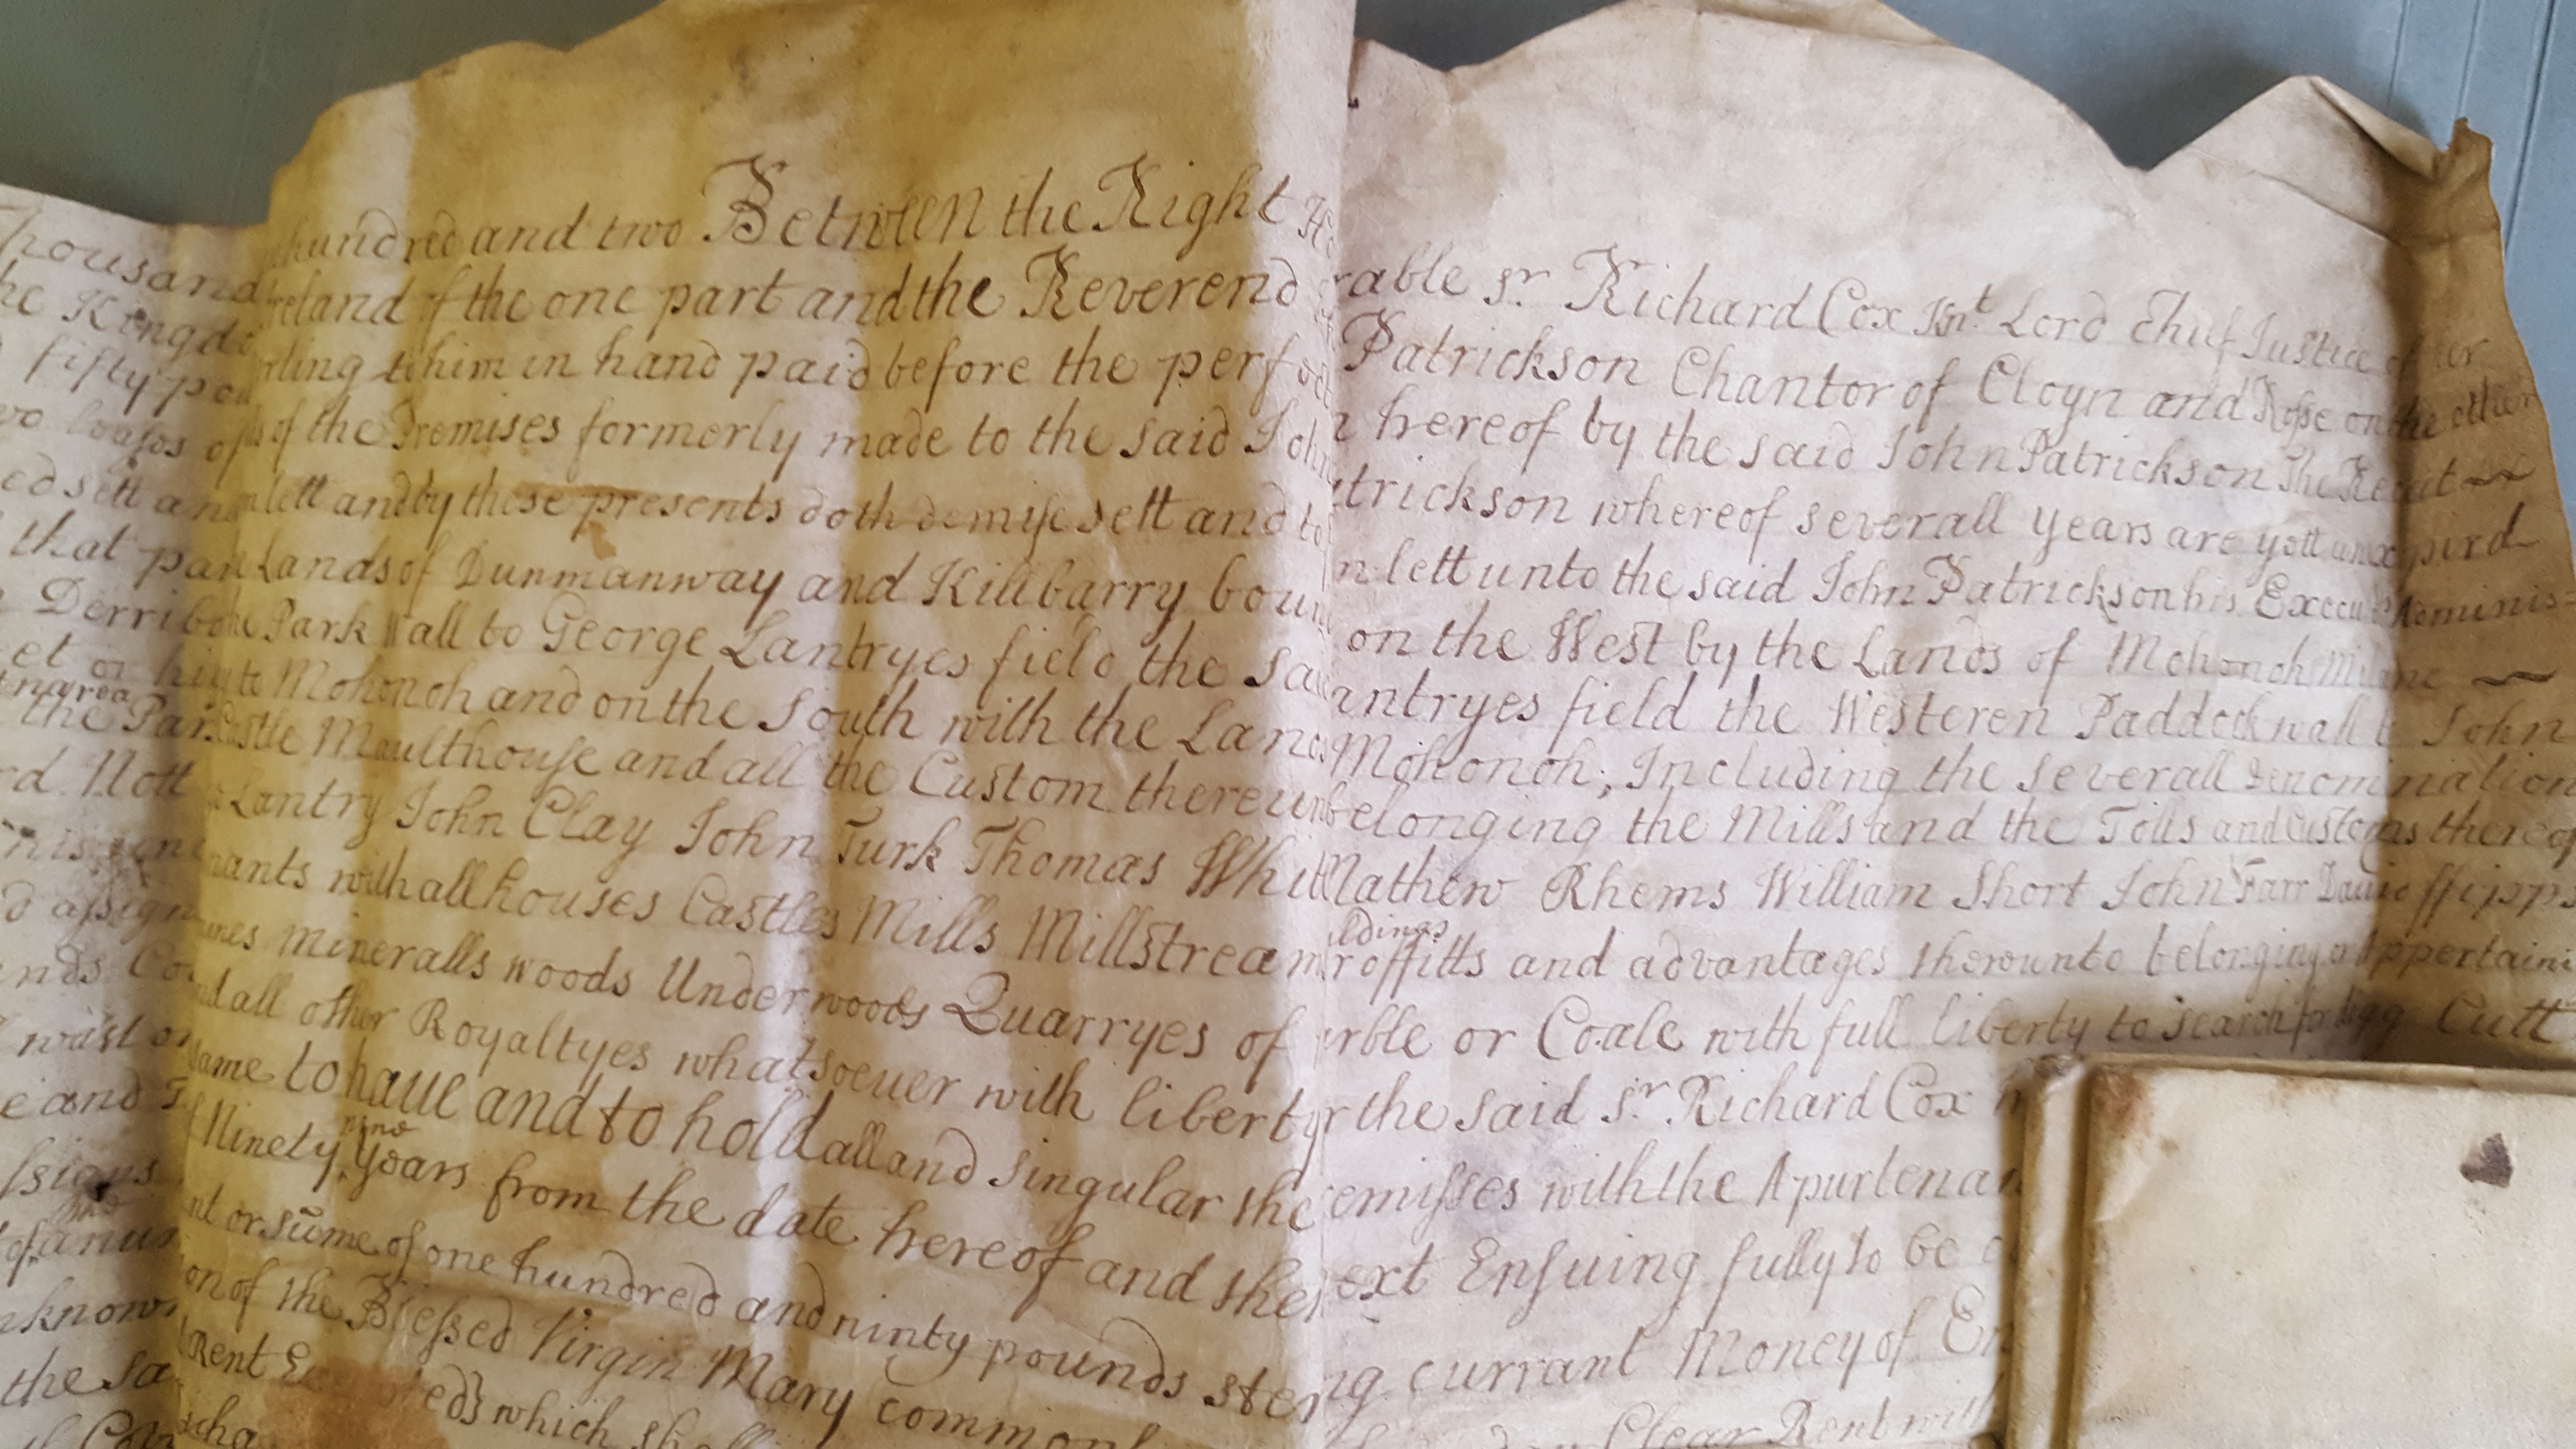 housand hundred and two Between the Right rable Sr. Richard Cox Knt. Lord Chief Justice of
he Kingdo eland of the one part and the Reverend Patrickson Chantor of Cloyn and Rosse on the other
fifty pou rling to him in hand paid before the perf hereof by the said John Patrickson The Re eit
of the Premises formerly made to the said John atrickson whereof severall years are yett unexpird
ed sett an lett and by these presents doth demise sett and to n lett unto the said John Patrickson his Execu Adminis
that par Lands of Dunmanway and Killbarry boun on the West by the Lands of Mohonoh
Derribo he Park Wall to George Lantryes field the sa antryes field the Westeren Paddock wall t John
et or hig to Mohonoh and on the South with the Lands Mohonoh; Including the severall Denomination
the Par Castle Maulthouse and all the Custom thereun belonging the Mills and the Tolls and Customs thereof
rd Nott Lantry John Clay John Turk Thomas Whit Mathew Rhems William Short John Farr David ffipps
nants with all houses Castles Mills Millstream ldings roffitts and advantages thereunto belonging or Appertaini
d assign ines mineralls woods Underwoods Quarryes of rble or Coale with full liberty to search for digg Cutt
nds Co nd all other Royaltyes whatsoever with liberty r the said Sr. Richard Cox
wast or same to have and to hold all and singular the emisses with the Apurtenan
e and T f Ninety nine years from the date hereof and the ext Ensuing fully to be
ssigns nt or sume of one hundred and ninty pounds ster ng currant Money of En
of anun on of the Blessed Virgin Mary commonl Clear Rent with
nknown Rent E ed} which shall
the sa